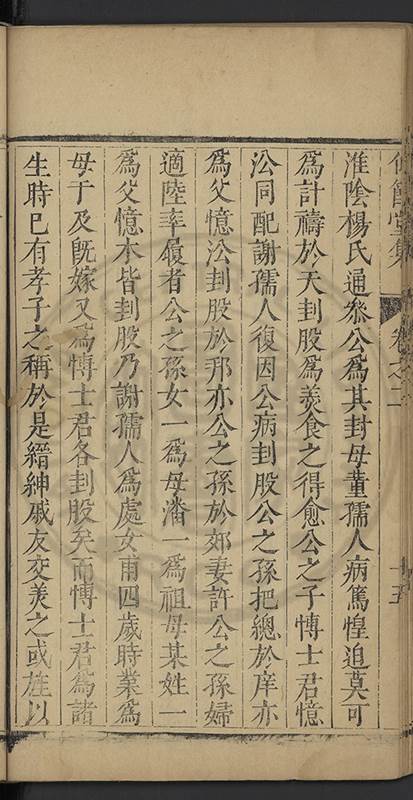 淮陰楊氏通叅公爲其封母董孺人病篤惶迫莫可
爲計禱於天刲股爲羮食之得愈公之子愽士君憶
㳂同配謝孺人復因公病刲股公之孫把總於庠亦
爲父憶㳂刲股於邦亦公之孫於郊妻許公之孫婦
適陸率履者公之孫女一爲母潘一爲祖母某姓一
爲父憶本皆刲股乃謝孺人爲處女甫四歲時業爲
母于及旣嫁又爲愽士君各刲股矣而愽士君爲諸
生時巳有孝子之稱於是縉紳戚友交羙之或旌以
堂集 卷之二
十五